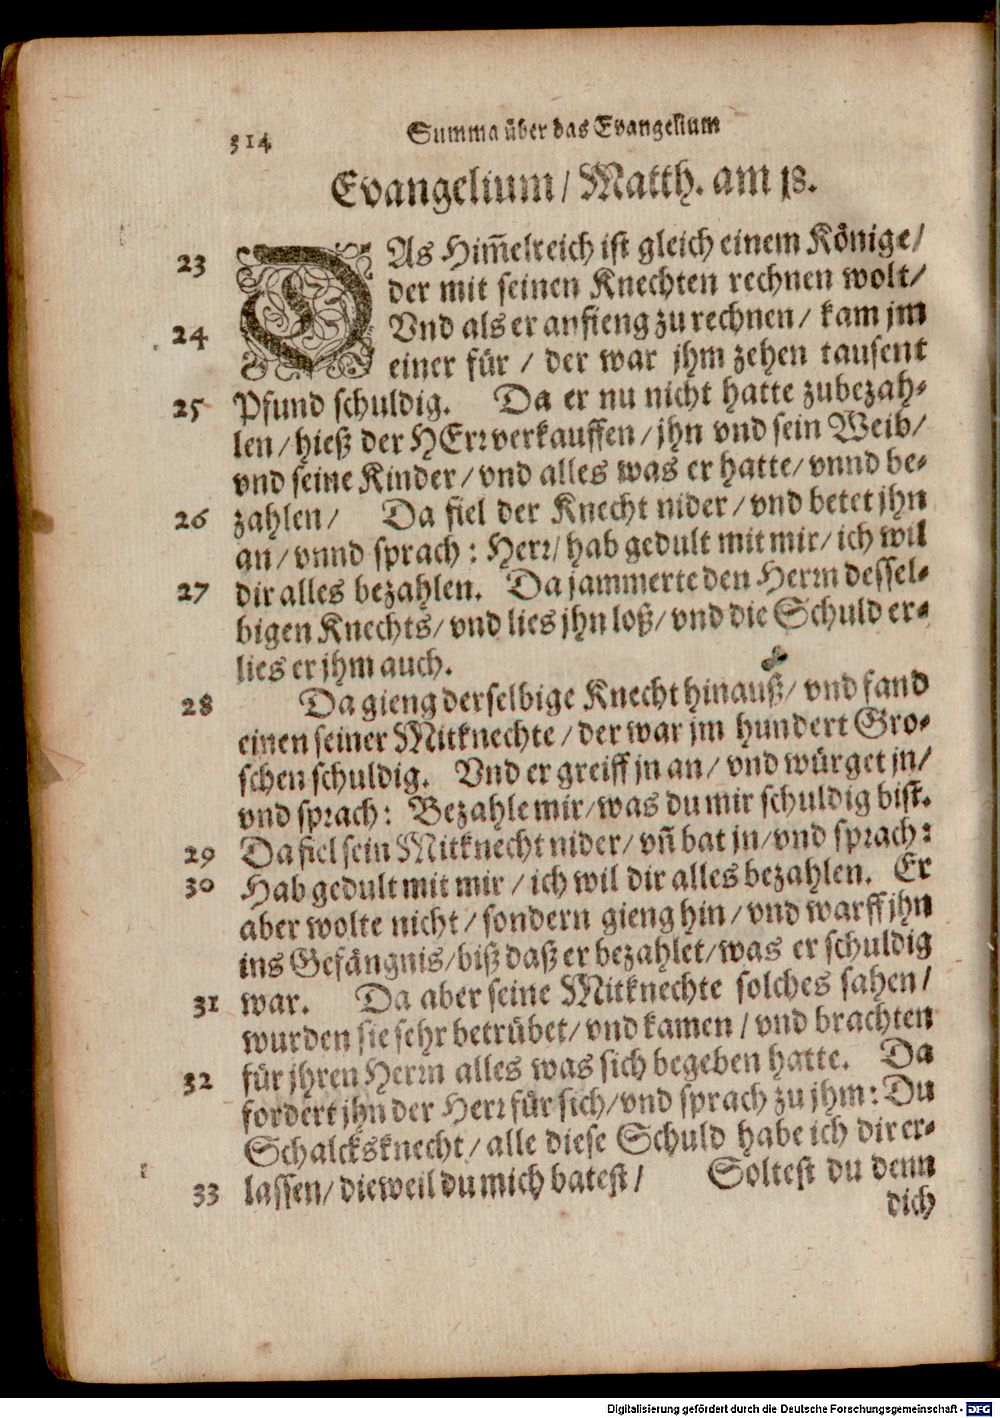 314 Summa über das Evangelium
Evangelium/ Matth. am 18.
23 DAs Him̃elreich ist gleich einem Könige/
der mit seinen Knechten rechnen wolt/
24 Vnd als er anfieng zu rechnen/ kam jm
einer für / der war jhm zehen tausent
25 Pfund schuldig. Da er nu nicht hatte zubezah-
len/ hieß der HErr verkauffen/ jhn vnd sein Weib/
vnd seine Kinder/ vnd alles was er hatte/ vnnd be-
26 zahlen/ Da fiel der Knecht nider/ vnd betet jhn
an/ vnnd sprach: Herr/ hab gedult mit mir/ ich wil
27 dir alles bezahlen. Da jammerte den Herrn dessel-
bigen Knechts/ vnd lies jhn loß/ vnd die Schuld er-
lies er jhm auch.
28 Da gieng derselbige Knecht hinauß/ vnd fand
einen seiner Mitknechte/ der war jm hundert Gro-
schen schuldig. Vnd er greiff jn an/ vnd würget jn/
vnd sprach: Bezahle mir/ was du mir schuldig bist.
29 Da fiel sein Mitknecht nider/ vn̄ bat jn/ vnd sprach:
30 Hab gedult mit mir / ich wil dir alles bezahlen. Er
aber wolte nicht/ sondern gieng hin/ vnd warff jhn
ins Gefängnis/ biß daß er bezahlet/ was er schuldig
31 war. Da aber seine Mitknechte solches sahen/
wurden sie sehr betrübet/ vnd kamen / vnd brachten
32 für jhren Herrn alles was sich begeben hatte. Da
fordert jhn der Herr für sich/ vnd sprach zu jhm: Du
Schalcksknecht/ alle diese Schuld habe ich dir er-
33 lassen/ dieweil du mich batest/ Soltest du denn
dich
Digitalisierung gefördert durch die Deutsche Forschungsgemeinschaft - DFG